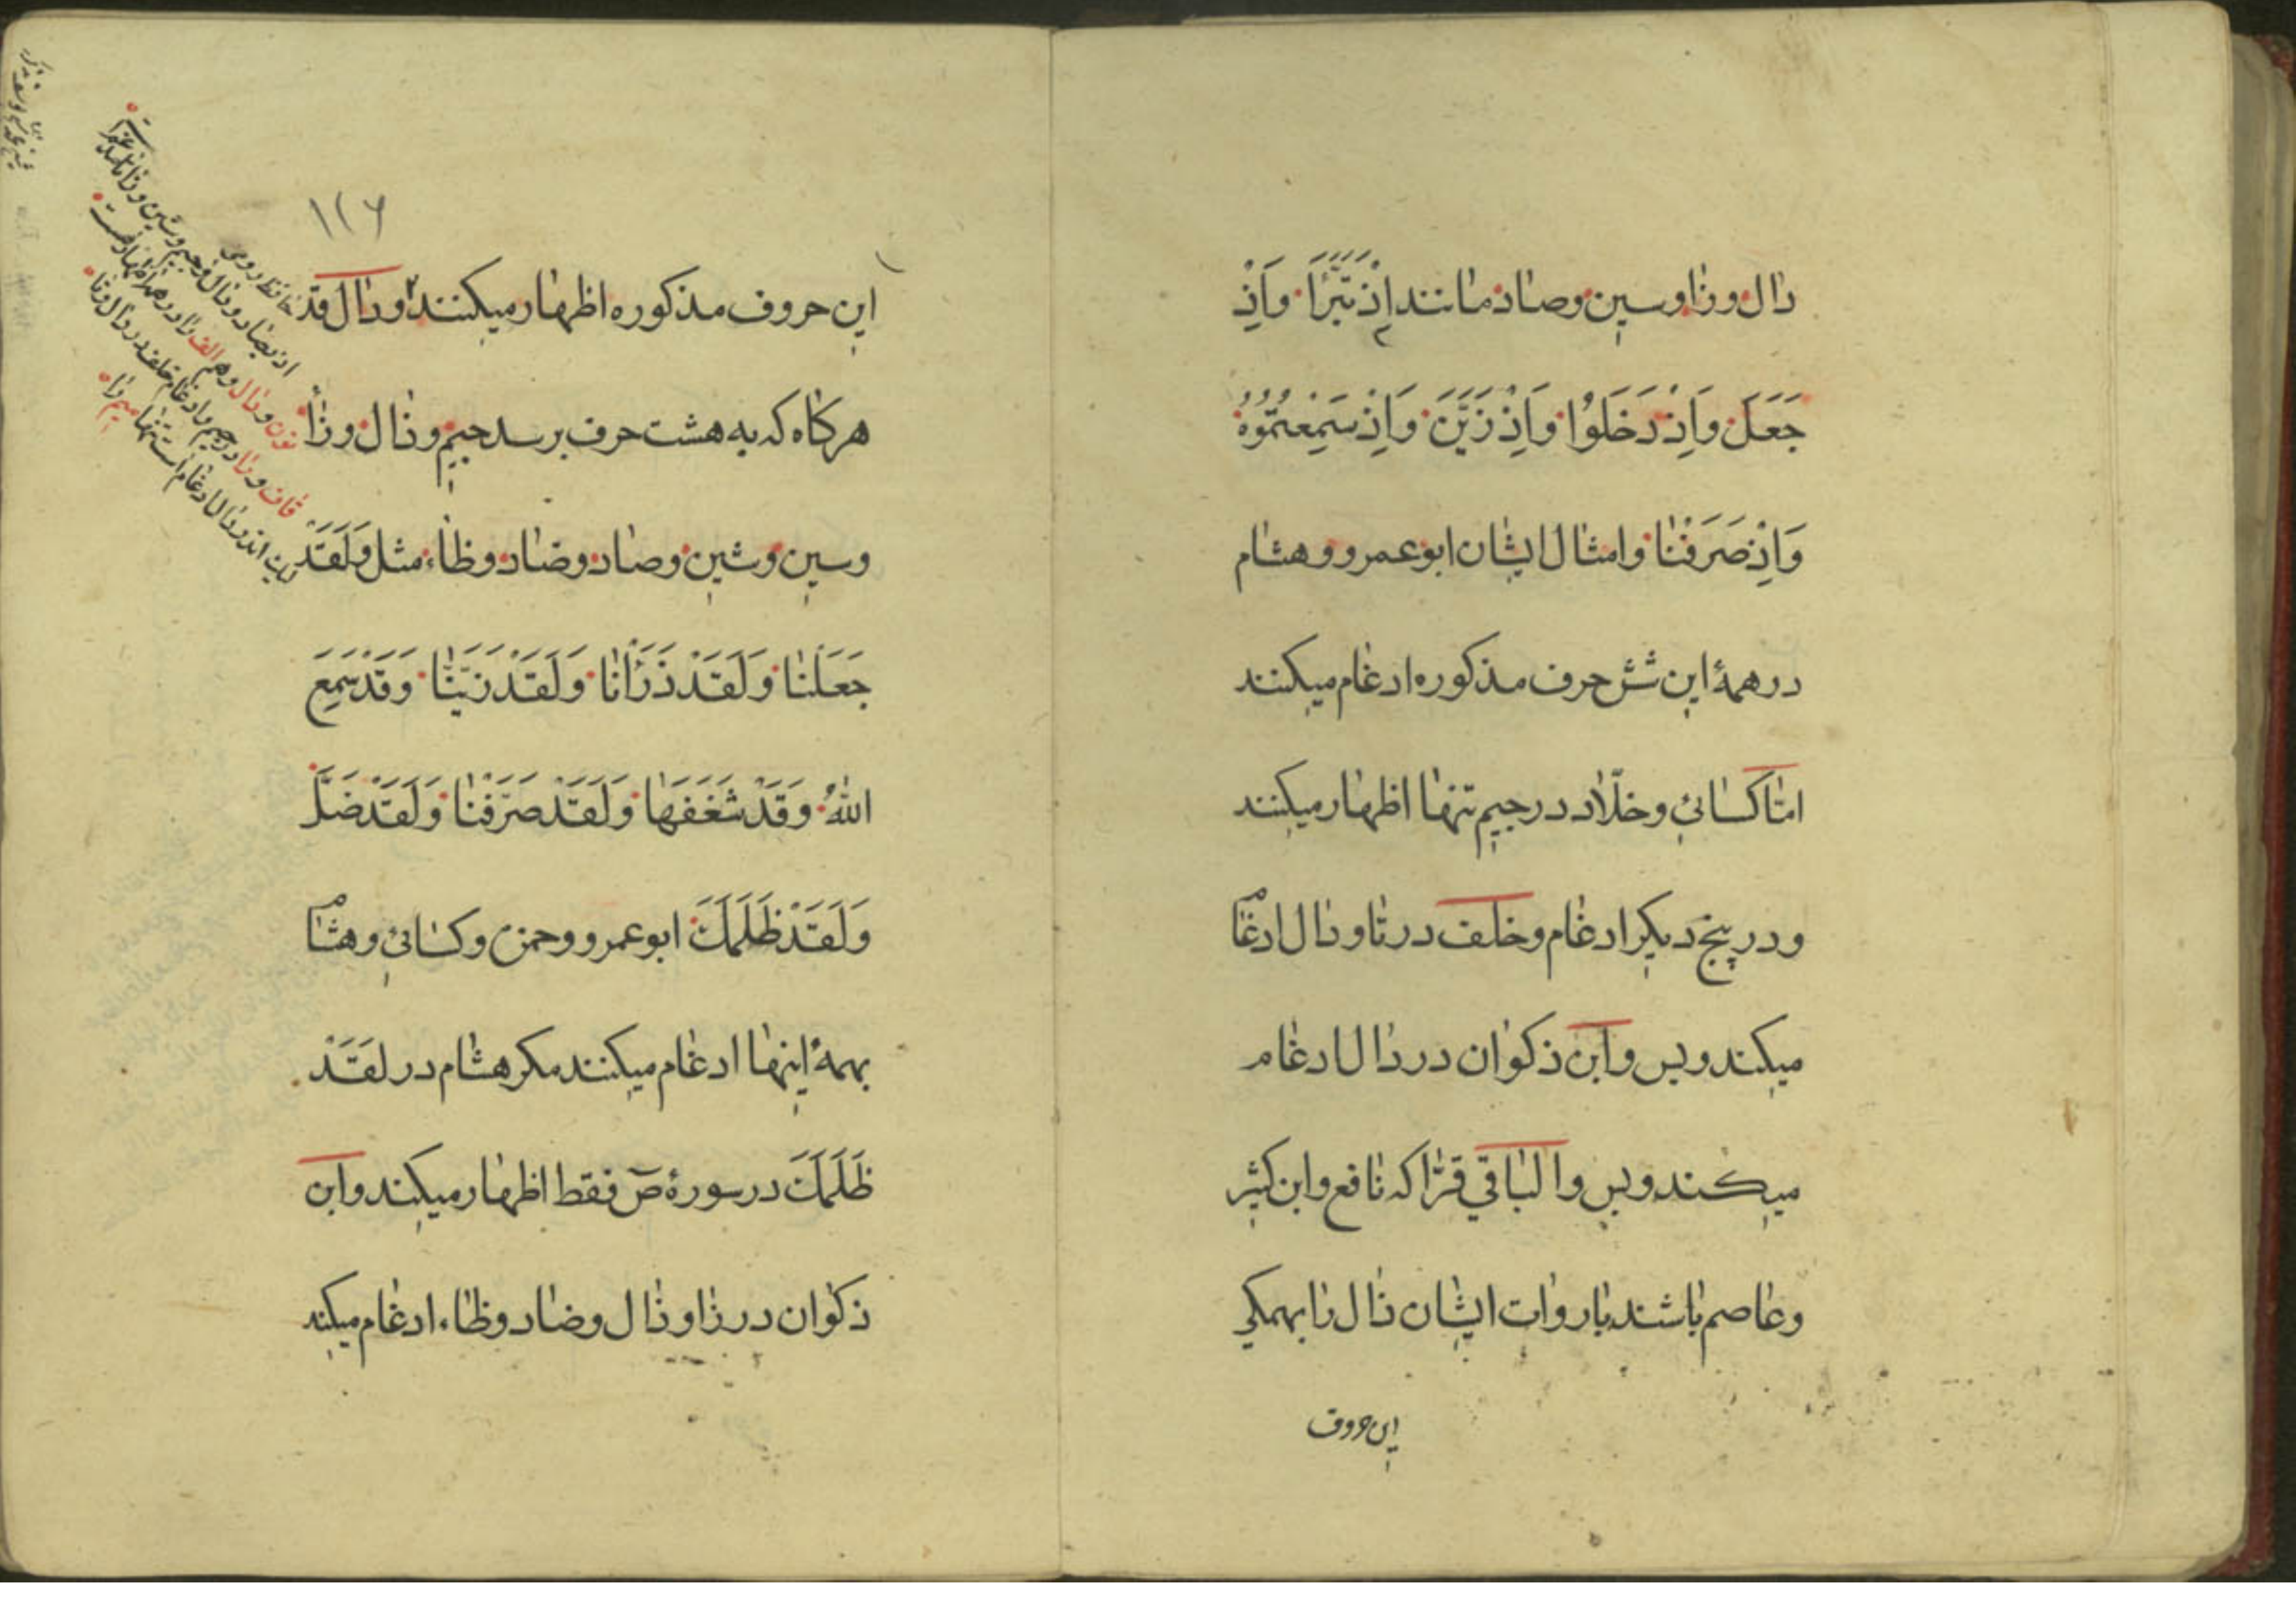 دال و زا و سین و صاد مانند اِذْ تَبَرَّأَ وَاِذْ
جَعَلَ وَاِذْ دَخَلُوا وَاِذْ زَیَّنَ وَاِذْ سَمِعْتُمُوهُ
وَاِذْ صَرَفْنَا و امثال ایشان ابوعمرو و هشام
در همهٔ این شش حرف مذکوره ادغام میکنند
امّا کسائی و خلّاد در جیم تنها اظهار میکنند
و در پنج دیگر ادغام و خلف در تا و دال ادغام
میکند و بس و ابن ذکوان در دال ادغام
میکند و بس و الباقی قرّا که نافع و ابن کثیر
و عاصم باشند با روات ایشان ذال را بهمکی
این حروف
۱۲۶
این حروف مذکوره اظهار میکنند و دال قد
هرکاه که به هشت حرف برسد جیم و ذال و زا
و سین و شین و صاد و ضاد و ظاء مثل وَلَقَدْ
جَعَلْنَا وَلَقَدْ ذَرَأْنَا وَلَقَدْ زَیَّنَّا وَقَدْ سَمِعَ
اللهُ وَقَدْ شَغَفَهَا وَلَقَدْ صَرَّفْنَا وَلَقَدْ ضَلَّ
وَلَقَدْ ظَلَمَكَ ابوعمرو و حمزه و کسائی و هشام
بهمهٔ اینها ادغام میکنند مکر هشام در لَقَدْ
ظَلَمَكَ در سورهٔ صٓ فقط اظهار میکند و ابن
ذکوان در زا و ذال و ضاد و ظاء ادغام میکند